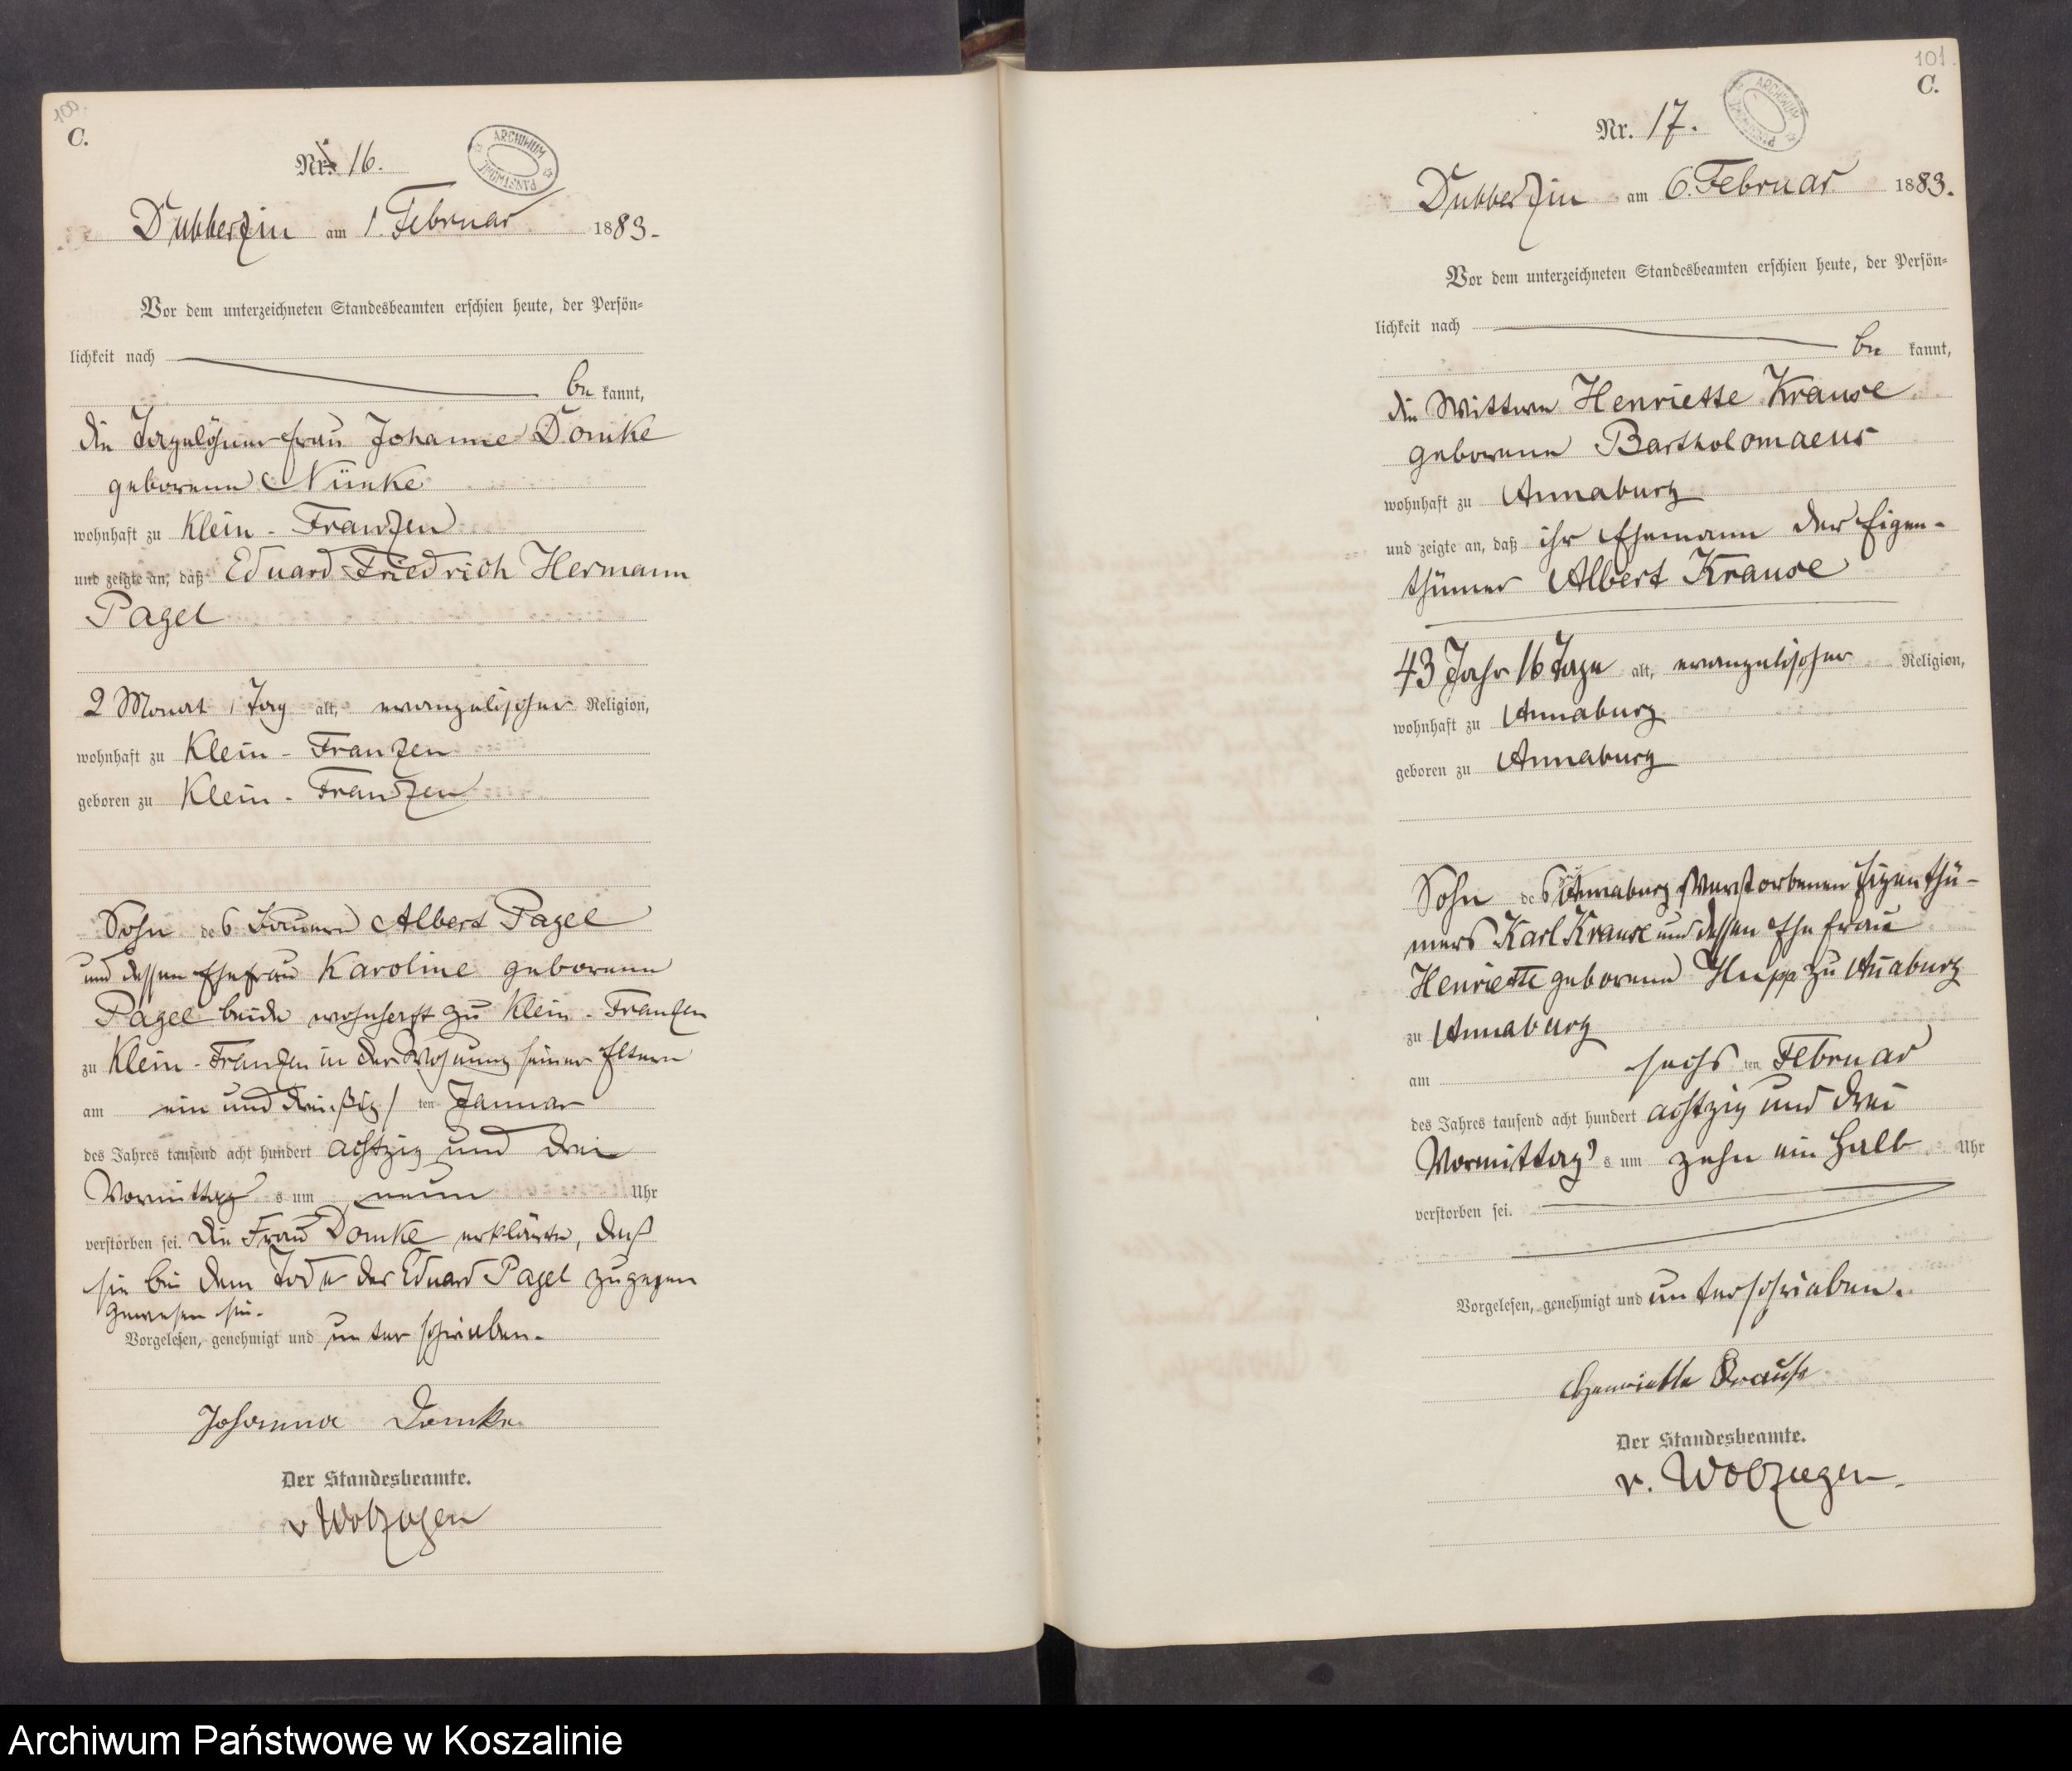 100.
C.
ARCHIWUM PAŃSTWOWE
Nr. 16.
Dubberzin am 1. Februar 1883.
Vor dem unterzeichneten Standesbeamten erschien heute, der Persön=
lichkeit nach
be kannt,
die Tagelöhner frau Johanne Domke
geborene Nünke
wohnhaft zu Klein - Franzen
und zeigte an, daß Eduard Friedrich Hermann
Pagel
2 Monat 1 Tag alt, evangelischer Religion,
wohnhaft zu Klein - Franzen
geboren zu Klein - Franzen
Sohn des Bauern Albert Pagel
und dessen Ehefrau Karoline geborene
Pagel beide wohnhaft zu Klein - Franzen
zu Klein - Franzen in der Wohnung seiner Eltern
am ein und dreißig ten Januar
des Jahres tausend acht hundert achtzig und drei
Vormittag s um neun Uhr
verstorben sei. Die Frau Domke erklärte, daß
sie bei dem Tode des Eduard Pagel zugegen
gewesen sei.
Vorgelesen, genehmigt und unterschrieben.
Johanna Domke
Der Standesbeamte.
v Wolzogen
101.
C.
ARCHIWUM PAŃSTWOWE
Nr. 17.
Dubberzin am 6. Februar 1883.
Vor dem unterzeichneten Standesbeamten erschien heute, der Persön=
lichkeit nach
be kannt,
die Wittwe Henriette Krause
geborene Bartholomaeus
wohnhaft zu Annaburg
und zeigte an, daß ihr Ehemann der Eigen-
thümer Albert Krause
43 Jahr 16 Tage alt, evangelischer Religion,
wohnhaft zu Annaburg
geboren zu Annaburg
Sohn des zu Annaburg verstorbenen Eigenthü-
mers Karl Krause und dessen Ehefrau
Henriette geborene Hupp zu Anaburg
zu Annaburg
am sechs ten Februar
des Jahres tausend acht hundert achtzig und drei
Vormittag s um zehn ein halb Uhr
verstorben sei.
Vorgelesen, genehmigt und unterschrieben.
Henriette Krause
Der Standesbeamte.
v. Wolzogen
Archiwum Państwowe w Koszalinie